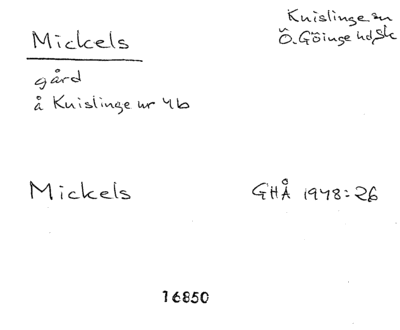 Mickels
Knislinge sn
Ö. Göinge hd, Sk
gård
å Knislinge nr 4b
Mickels
GHÅ 1948:26
16850